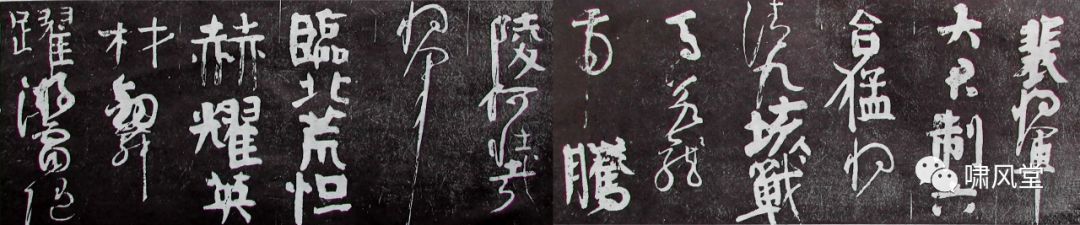 裴將軍
大君制六
合猛將
清九垓戰
馬若龍
虎騰
陵何壯哉
將軍
臨北荒恒
赫耀英
材劍舞
躍游電隨
啸风堂